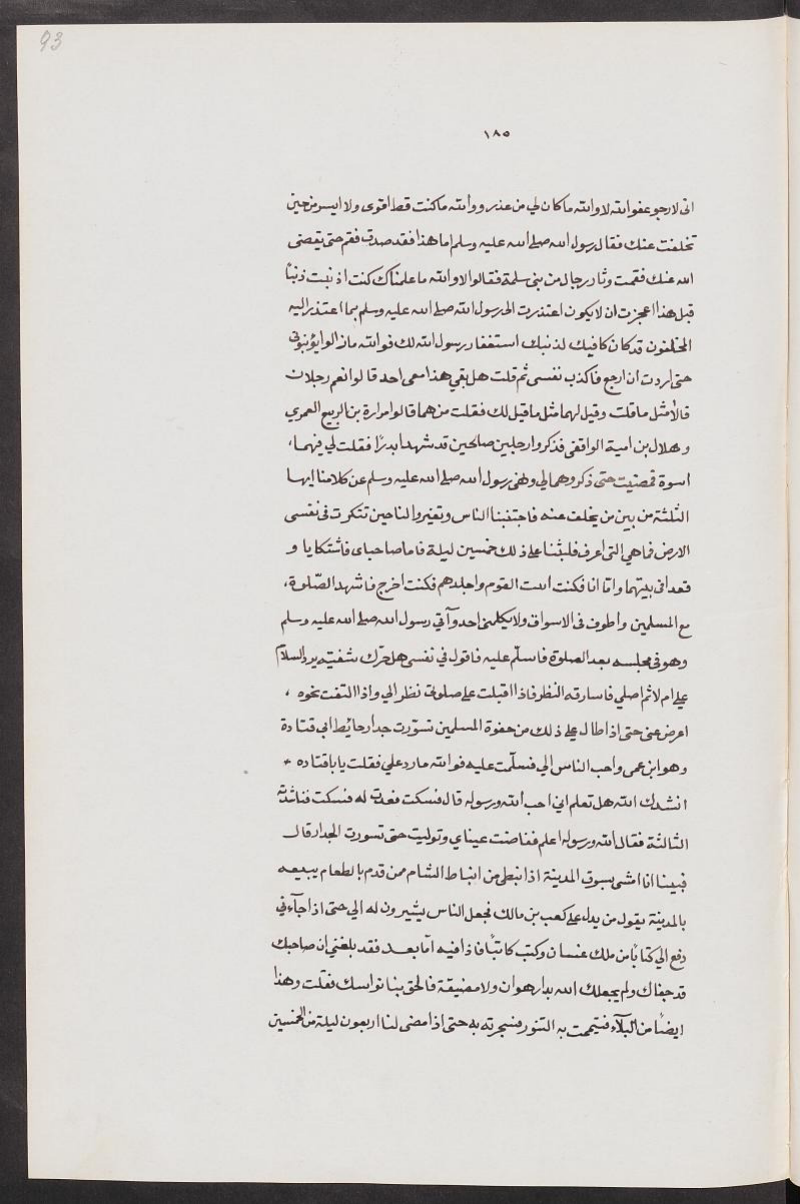 93
١٨٥
انى لارجو عفو الله لا والله ما كان لي من عذر ووالله ما كنت قط اقوى ولا ايسر من حين
تخلفت عنك فقال رسول الله صلى الله عليه وسلم اما هذا فقد صدق فقم حتى يقضى
الله عنك فقمت وثار رجال من بنى سلمة فقالوا لا والله ما علمناك كنت اذنبت ذنبًا
قبل هذا اعجزت ان لا يكون اعتذرت الى رسول الله صلى الله عليه وسلم بما اعتذر اليه
المخلفون قد كان كافيك لذنبك استغفار رسول الله لك فوالله مازالوا يؤنبونى
حتى اردت ان ارجع فاكذب نفسى ثم قلت هل بقي هذا معى احد قالوا نعم رجلان
قالا مثل ما قلت وقيل لهما مثل ما قيل لك فقلت من هما قالوا مرارة بن الربيع العمري
وهلال بن امية الواقفى فذكروا رجلين صالحين قد شهدا بدرًا فقلت لي فيهما،
اسوة فمضيت حتى ذكروهما لي ونهى رسول الله صلى الله عليه وسلم عن كلامنا ايها
الثلثة من بين من يخلف عنه فاجتنبنا الناس وتغيروا لنا حين تنكرت فى نفسى
الارض فما هي التى اعرف فلبثنا على ذلك خمسين ليلة فاما صاحباى فاشتكايا و
قعدا فى بيتهما واما انا فكنت اشب القوم واجلدهم فكنت اخرج فاشهد الصّلوة،
مع المسلمين واطوف فى الاسواق ولا يكلمنى احد وآتي رسول الله صلى الله عليه وسلم
وهو فى مجلسه بعد الصلوة فاسلّم عليه فاقول في نفسى هل حرّك شفتيه برد السلام
علي ام لا ثم اصلي فاسارقه النظر فاذا اقبلت على صلوتى نظر الي واذا التفت نحوه ،
اعرض عنى حتى اذا طال علي ذلك من جفوة المسلمين تسوّرت جدار حائط ابى قتادة
وهو ابن عمى واحب الناس الي فسلّمت عليه فوالله ما رد علي فقلت يا با قتاده
انشدك الله هل تعلم اني احب الله ورسوله قال فسكت فعدت له فسكت فناشدته
الثالثة فقال الله ورسوله اعلم ففاضت عيناي وتوليت حتى تسورت الجدار قال
فبينا انا امشى بسوق المدينة اذا نبطى من انباط الشام ممن قدم بالطعام يبيعه
بالمدينة يقول من يدل على كعب بن مالك فجعل الناس يشيرون له الي حتى اذا جآءني
دفع الي كتابًا من ملك غسان وكتب كاتبًا فاذا فيه امّا بعد فقد بلغني ان صاحبك
قد جفاك ولم يجعلك الله بدار هوان ولا مضيعة فالحق بنا نواسك فقلت وهذا
ايضًا من البلآء فتيممت به التنور فسجرته به حتى اذا مضى لنا اربعون ليلة من الخمسين